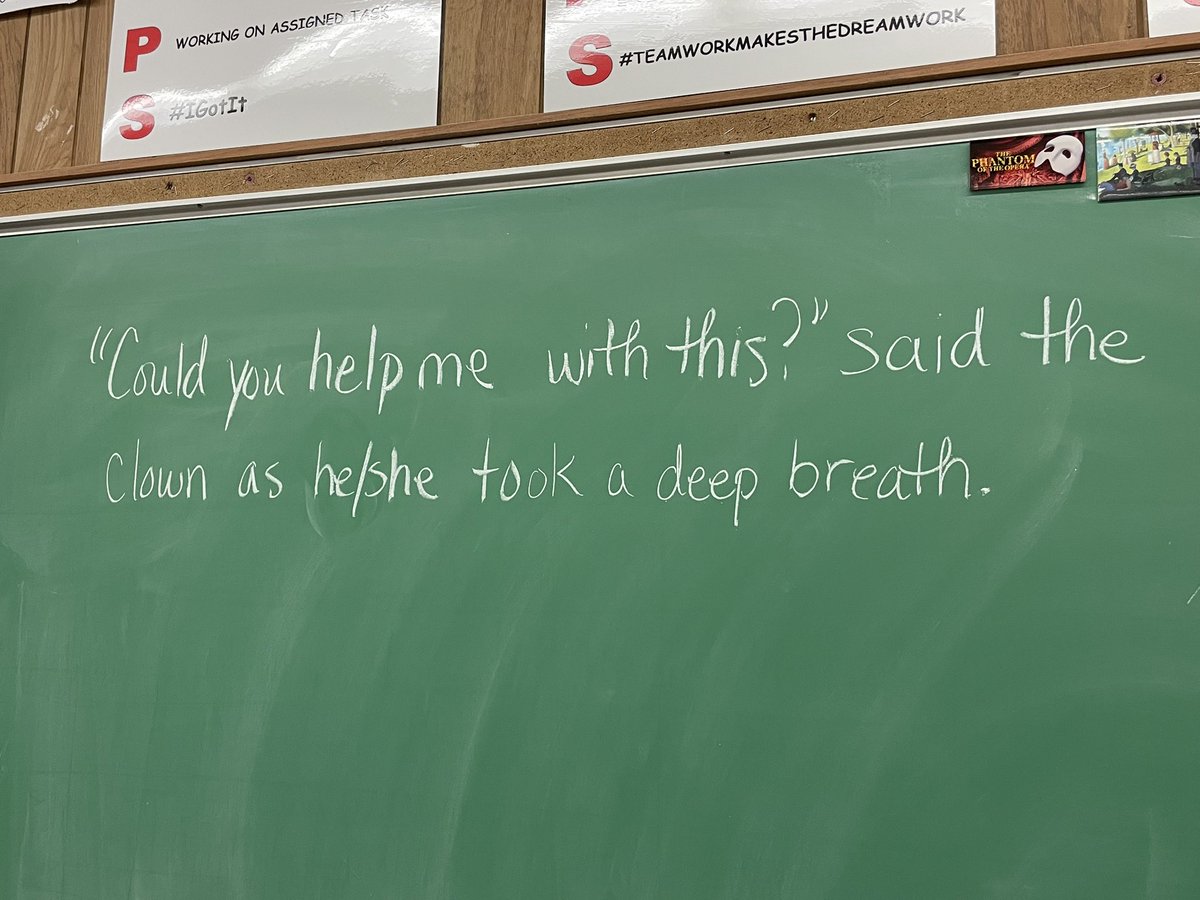 P WORKING ON ASSIGNED TASK
S #IGotIt
S #TEAMWORKMAKESTHEDREAMWORK
THE
PHANTOM
OF THE OPERA
"Could you help me with this?" said the
clown as he/she took a deep breath.